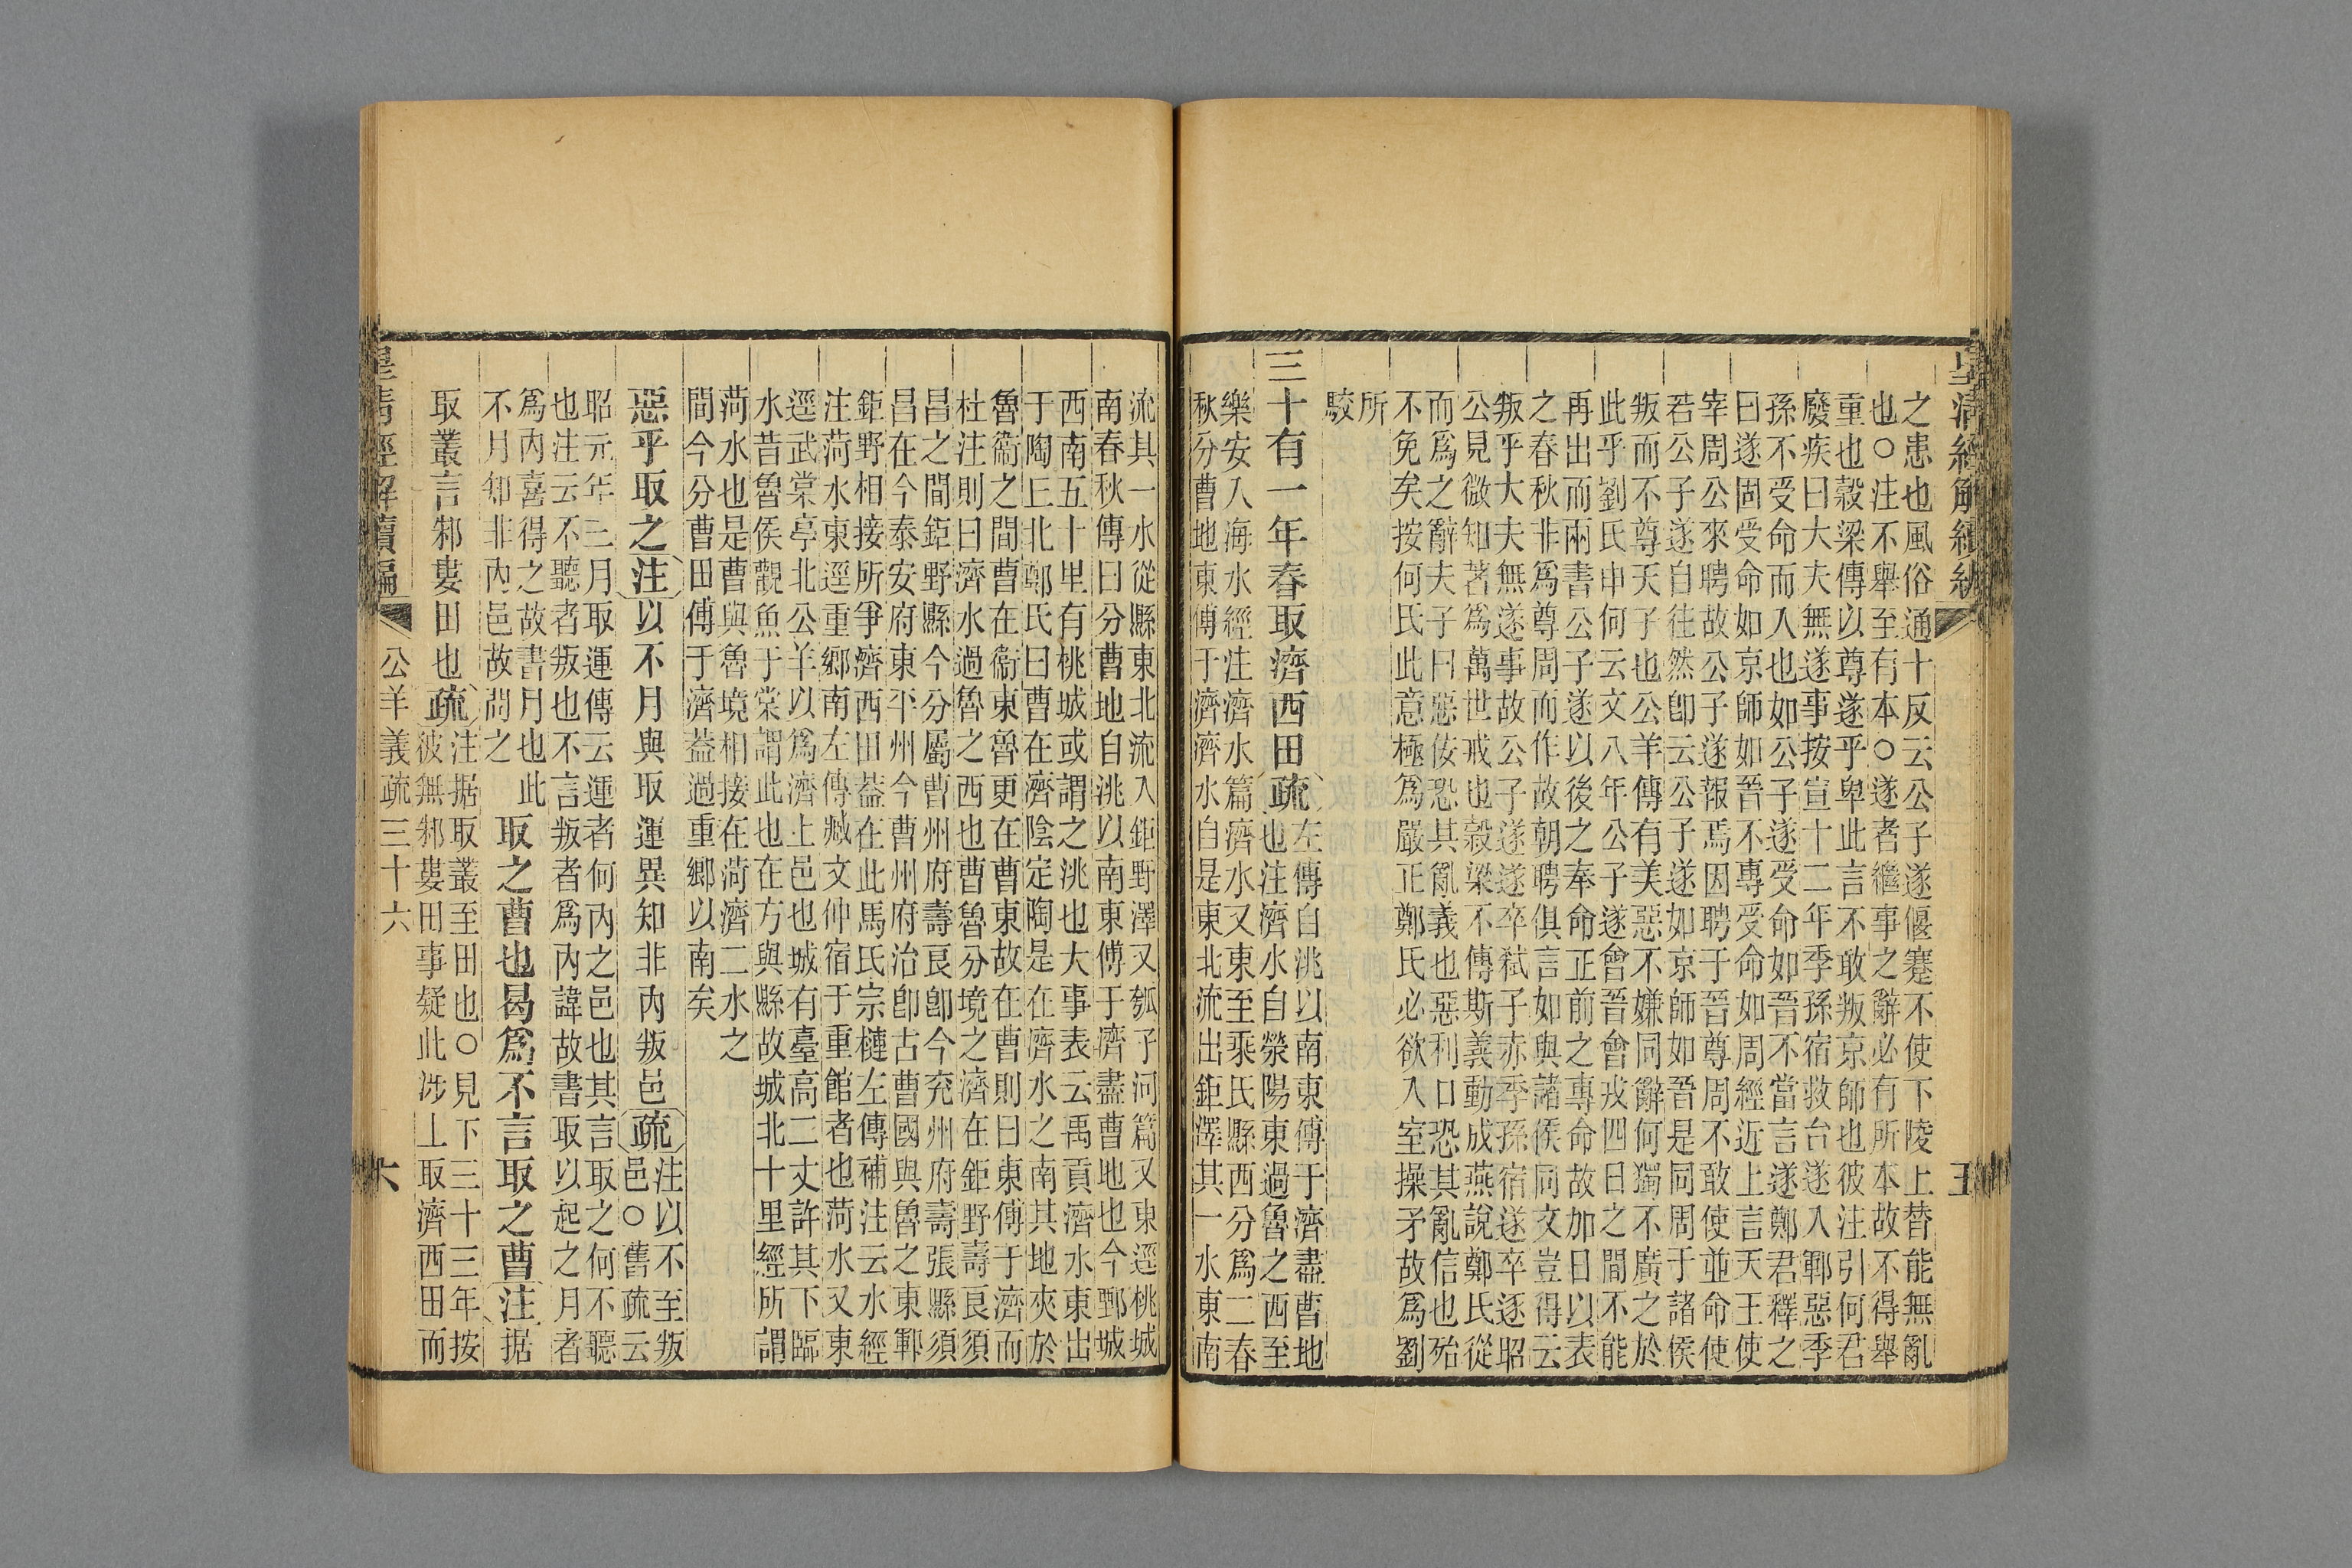 皇清經解續編
之患也風俗通十反云公子遂偃蹇不使下陵上替能無亂
也○注不舉至有本○遂者繼事之辭必有所本故不得舉
重也穀梁傳以尊遂乎卑此言不敢叛京師也彼注引何君
廢疾曰大夫無遂事按宣十二年季孫宿救台遂入鄆惡季
孫不受命而入也如公子遂受命如晉不當言遂鄭君釋之
曰遂固受命如京師如晉不專受命如周經近上言天王使
宰周公來聘故公子遂報焉因聘于晉尊周不敢使並命使
若公子遂自往然卽云公子遂如京師如晉是同周于諸侯
叛而不尊天子也公羊傳有美惡不嫌同辭何獨不廣之於
此乎劉氏申何云文八年公子遂會晉會戎四日之間不能
再出而兩書公子遂以後之奉命正前之專命故加日以表
之春秋非爲尊周而作故朝聘俱言如與諸侯同文豈得云
叛乎大夫無遂事故公子遂遂卒弒子赤季孫宿遂卒逐昭
公見微知著爲萬世戒也穀梁不傳斯義動成燕說鄭氏從
而爲之辭夫子曰惡佞恐其亂義也惡利口恐其亂信也殆
不免矣按何氏此意極爲嚴正鄭氏必欲入室操矛故爲劉
所
駮
三十有一年春取濟西田疏
左傳自洮以南東傅于濟盡曹地
也注濟水自滎陽東過魯之西至
樂安入海水經注濟水篇濟水又東至乘氏縣西分爲二春
秋分曹地東傅于濟濟水自是東北流出鉅澤其一水東南
流其一水從縣東北流入鉅野澤又瓠子河篇又東逕桃城
南春秋傳曰分曹地自洮以南東傅于濟盡曹地也今鄄城
西南五十里有桃城或謂之洮也大事表云禹貢濟水東出
于陶丘北鄭氏曰曹在濟陰定陶是在濟水之南其地夾於
魯衞之間曹在衞東魯更在曹東故在曹則曰東傅于濟而
杜注則曰濟水過魯之西也曹魯分境之濟在鉅野壽良須
昌之間鉅野縣今分屬曹州府壽良卽今兗州府壽張縣須
昌在今泰安府東平州今曹州府治卽古曹國與魯之東鄆
鉅野相接所爭濟西田葢在此馬氏宗槤左傳補注云水經
注菏水東逕重鄉南左傳臧文仲宿于重館者也菏水又東
逕武棠亭北公羊以爲濟上邑也城有臺高二丈許其下臨
水昔魯侯觀魚于棠謂此也在方與縣故城北十里經所謂
菏水也是曹與魯境相接在菏濟二水之
間今分曹田傅于濟葢過重鄉以南矣
惡乎取之注以不月與取運異知非內叛邑疏
注以不至叛
邑○舊疏云
昭元年三月取運傳云運者何內之邑也其言取之何不聽
也注云不聽者叛也不言叛者爲內諱故書取以起之月者
爲內喜得之故書月也此
不月知非內邑故問之
取之曹也曷爲不言取之曹注据
取叢言邾婁田也疏
注据取叢至田也○見下三十三年按
彼無邾婁田事疑此涉上取濟西田而
皇清經解續編
公羊義疏三十六
六